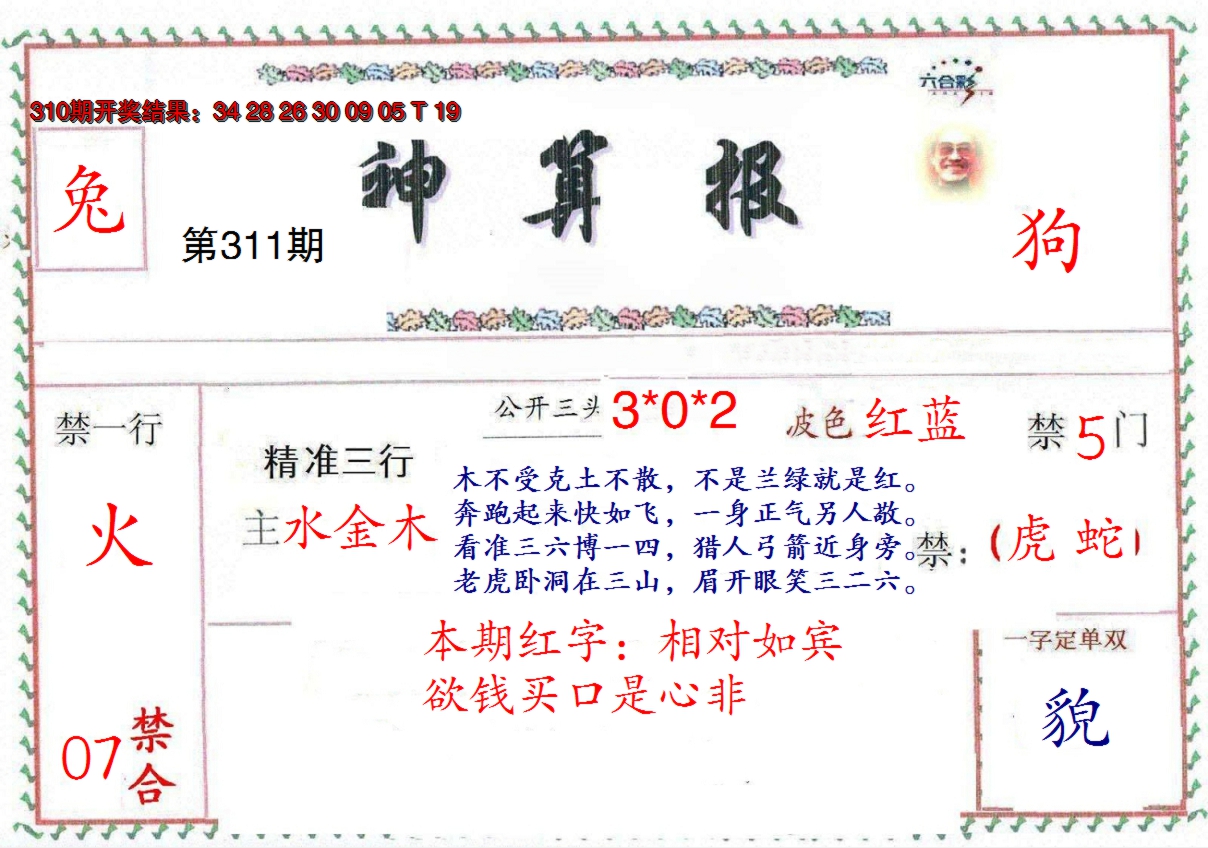 六合彩
310期开奖结果：34 28 26 30 09 05 T 19
神算报
兔
第311期
狗
禁一行
火
07禁合
精准三行
主水金木
公开三头 3*0*2
波色 红蓝
禁5门
木不受克土不散，不是兰绿就是红。
奔跑起来快如飞，一身正气另人敬。
看准三六博一四，猎人弓箭近身旁。
老虎卧洞在三山，眉开眼笑三二六。
禁：（虎 蛇）
本期红字：相对如宾
欲钱买口是心非
一字定单双
貌